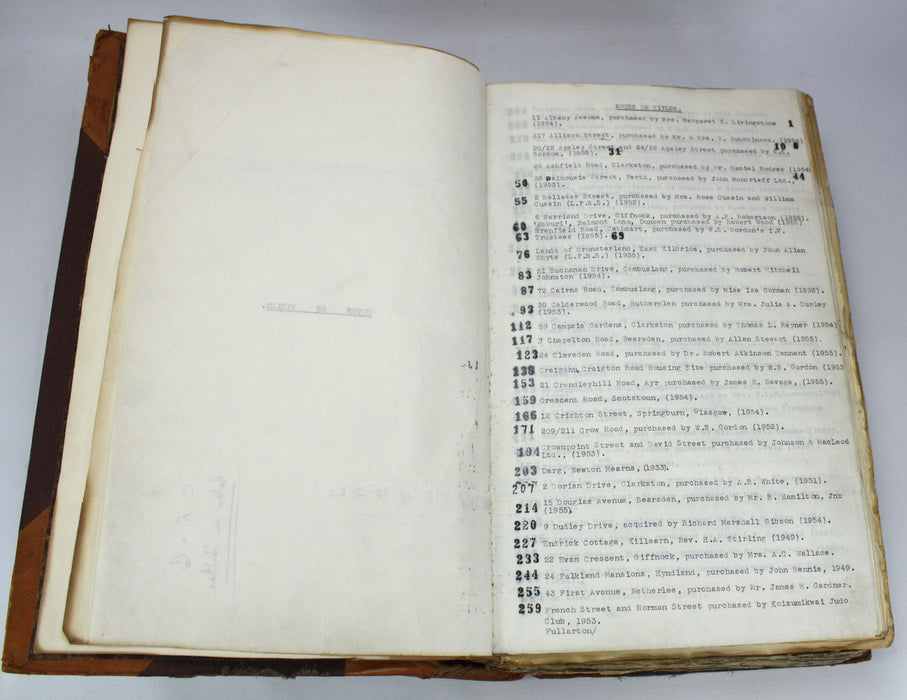 NOTES ON TITLES.
11 Albany Avenue, purchased by Mrs. Margaret K. Livingstone 1
(1954).
317 Allison Street, purchased by Mr. & Mrs. D. Hutchinson, (1954)
20/22 Apsley Street and 24/26 Apsley Street purchased by W.S. 10
Gordon, (1955). 31
25 Ashfield Road, Clarkston, purchased by Mr. Daniel Rodger (1954)
38 Dalhousie Street, Perth, purchased by John Moncrieff Ltd., 44
50 (1953).
55 2 Ballater Street, purchased by Mrs. Rose Cussin and William
Cussin (L.P.B.S.) (1952).
6 Barrland Drive, Giffnock, purchased by A.B. Robertson (1955).
60 'Makuri', Belmont Lane, Dunoon purchased by Robert Wood (1955)
63 Brenfield Road, Cathcart, purchased by W.S. Gordon's I.V.
Trustees (1955). 69
76 Lands of Brunsterland, East Kilbride, purchased by John Allan
Whyte (L.P.B.S.) (1935).
83 51 Buchanan Drive, Cambuslang, purchased by Robert Mitchell
Johnston (1954).
87 72 Cairns Road, Cambuslang, purchased by Miss Ina Gorman (1936).
93 39 Calderwood Road, Rutherglen purchased by Mrs. Julia A. Curley
(1953).
112 89 Campsie Gardens, Clarkston purchased by Thomas L. Reyner (1954)
117 7 Chapelton Road, Bearsden, purchased by Allan Stewart (1955).
123 24 Cleveden Road, purchased by Dr. Robert Atkinson Tennent (1955).
138 Craigdhu, Craigton Road Housing Site purchased by W.S. Gordon (1953
153 21 Crandleyhill Road, Ayr purchased by James H. Savage, (1955).
159 Crescent Road, Scotstoun, (1954).
166 12 Crichton Street, Springburn, Glasgow, (1954).
171 209/211 Crow Road, purchased by W.S. Gordon (1952).
194 Crownpoint Street and David Street purchased by Johnson & MacLeod
Ltd., (1953).
203 Darg, Newton Mearns, (1933).
207 2 Dorian Drive, Clarkston, purchased by A.R. White, (1951).
214 15 Douglas Avenue, Bearsden, purchased by Mr. R. Hamilton, Jnr
(1955).
220 9 Dudley Drive, acquired by Richard Marshall Gibson (1954).
227 Endrick Cottage, Killearn, Rev. H.A. Stirling (1949).
233 22 Evan Crescent, Giffnock, purchased by Mrs. A.C. Wallace.
244 24 Falkland Mansions, Hyndland, purchased by John Bennie, 1949.
255 43 First Avenue, Netherlee, purchased by Mr. James M. Gardner.
259 French Street and Norman Street purchased by Koizumikwai Judo
Club, 1953.
Fullarton/